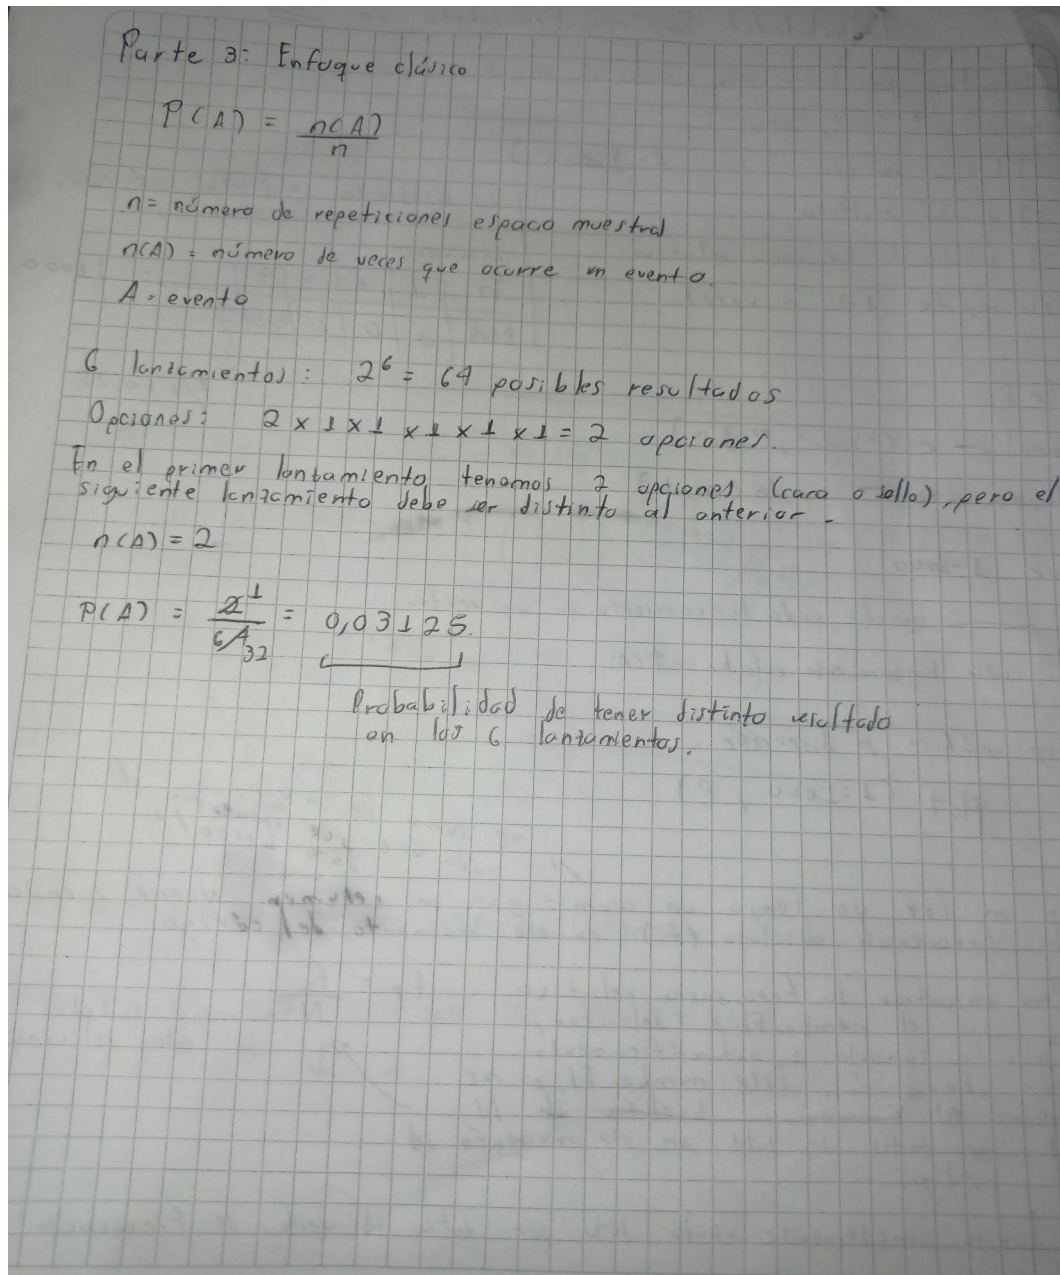 Parte 3: Enfoque clásico
P(A) = n(A) / n
n = número de repeticiones espacio muestral
n(A) = número de veces que ocurre un evento.
A = evento
6 lanzamientos: 2^6 = 64 posibles resultados
Opciones: 2 x 1 x 1 x 1 x 1 x 1 = 2 opciones.
En el primer lanzamiento tenemos 2 opciones (cara o sello), pero el
siguiente lanzamiento debe ser distinto al anterior.
n(A) = 2
P(A) = 2 1 / 64 32 = 0,03125.
Probabilidad de tener distinto resultado
en los 6 lanzamientos.